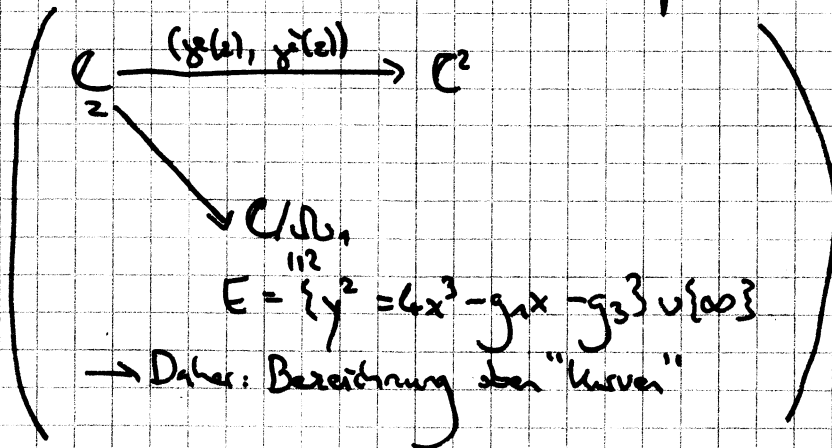 (℘(z), ℘'(z))
ℂ → ℂ²
z
ℂ/Ω,
E = {y² = 4x³ - g₁x - g₃} ∪ {∞}
→ Daher: Bezeichnung oben "Kurven"